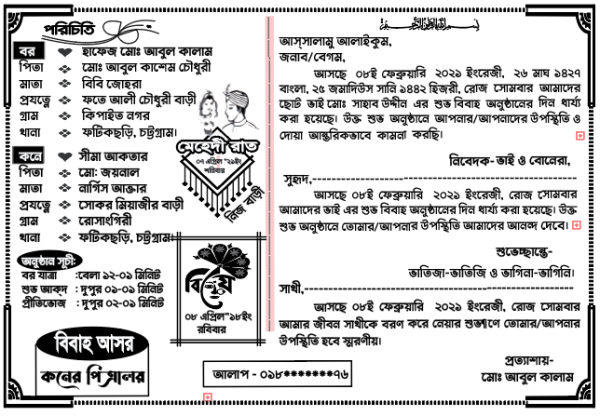 পরিচিতি
বর হাফেজ মোঃ আবুল কালাম
পিতা মোঃ আবুল কাশেম চৌধুরী
মাতা বিবি জোহরা
প্রযত্নে ফতে আলী চৌধুরী বাড়ী
গ্রাম কিপাইত নগর
থানা ফটিকছড়ি, চট্টগ্রাম।
কনে সীমা আকতার
পিতা মো: জয়নাল
মাতা নার্গিস আক্তার
প্রযত্নে সোকর মিয়াজীর বাড়ী
গ্রাম রোসাংগিরী
থানা ফটিকছড়ি, চট্টগ্রাম।
অনুষ্ঠান সূচী:
বর যাত্রা :বেলা ১২-০১ মিনিট
শুভ আক্‌দ :দুপুর ০১-০১ মিনিট
প্রীতিভোজ :দুপুর ০২-০১ মিনিট
বিবাহ আসর
কনের পিত্রালয়
মেহেদী রাত
০৭ এপ্রিল"২১ইং
শনিবার
নিজ বাড়ী
০৮ এপ্রিল"১৮ইং
রবিবার
আস্সালামু আলাইকুম,
জনাব/বেগম,
আসছে ০৮ই ফেব্রুয়ারি ২০২১ ইংরেজী, ২৬ মাঘ ১৪২৭
বাংলা, ২৫ জমাদিউস সানি ১৪৪২ হিজরী, রোজ সোমবার আমাদের
ছোট ভাই মোঃ সাহাব উদ্দীন এর শুভ বিবাহ অনুষ্ঠানের দিন ধার্য্য
করা হয়েছে। উক্ত শুভ অনুষ্ঠানে আপনার/আপনাদের উপস্থিতি ও
দোয়া আন্তরিকভাবে কামনা করছি।
নিবেদক-ভাই ও বোনেরা,
সুহৃদ,
আসছে ০৮ই ফেব্রুয়ারি ২০২১ ইংরেজী, রোজ সোমবার
আমাদের ভাই এর শুভ বিবাহ অনুষ্ঠানের দিন ধার্য্য করা হয়েছে। উক্ত
শুভ অনুষ্ঠানে তোমার/আপনার উপস্থিতি আমাদের আনন্দ দেবে।
শুভেচ্ছান্তে-
ভাতিজা-ভাতিজি ও ভাগিনা-ভাগিনি।
সাথী,
আসছে ০৮ই ফেব্রুয়ারি ২০২১ ইংরেজী, রোজ সোমবার
আমার জীবন সাথীকে বরণ করে নেয়ার শুভক্ষণে তোমার/আপনার
উপস্থিতি হবে স্মরণীয়।
প্রত্যাশায়-
মোঃ আবুল কালাম
আলাপ - ০১৮*******৭৬